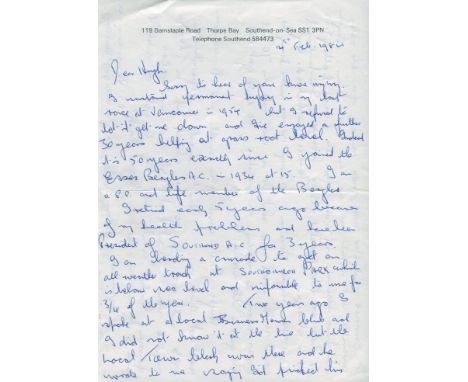 118 Barnstaple Road Thorpe Bay Southend-on-Sea SS1 3PN
Telephone Southend 584473
Feb. 1984
Dear Hugh.
Sorry to hear of your knee injury
I sustained permanent injury in my last
race at Vancouver in 1954 but I refused to
let it get me down and I've enjoyed a further
30 years helping at grass root level. Indeed
it is 50 years exactly since I joined the
Essex Beagles A.C. - 1934 at 15. I am
a P.P. and life member of the Beagles
I retired early 5 years ago because
of my health problems and have been
President of SOUTHEND A.C for 3 years
I am heading a crusade to get an
all weather track at SOUTHCHURCH PARK which
is below sea level and impossible to use for
3/4 of the year. Two years ago I
spoke at a local Business Mans club and
I did not know it at the time but the
Local Town Clerk was there and he
wrote to me saying I'd pricked his